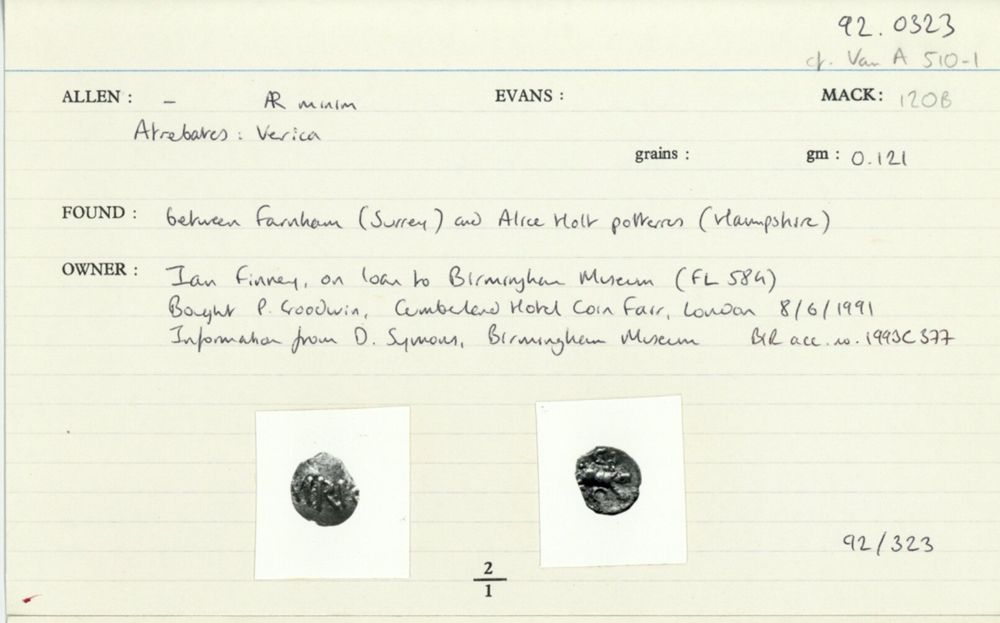 92.0323
cf. Van A 510-1
ALLEN : – AR minim EVANS : MACK: 120B
Atrebates : Verica
grains : gm : 0.121
FOUND : between Farnham (Surrey) and Alice Holt potteries (Hampshire)
OWNER : Ian Finney, on loan to Birmingham Museum (FL 584)
Bought P. Goodwin, Cumberland Hotel Coin Fair, London 8/6/1991
Information from D. Symons, Birmingham Museum BIR acc. no. 1993C377
92/323
2
1